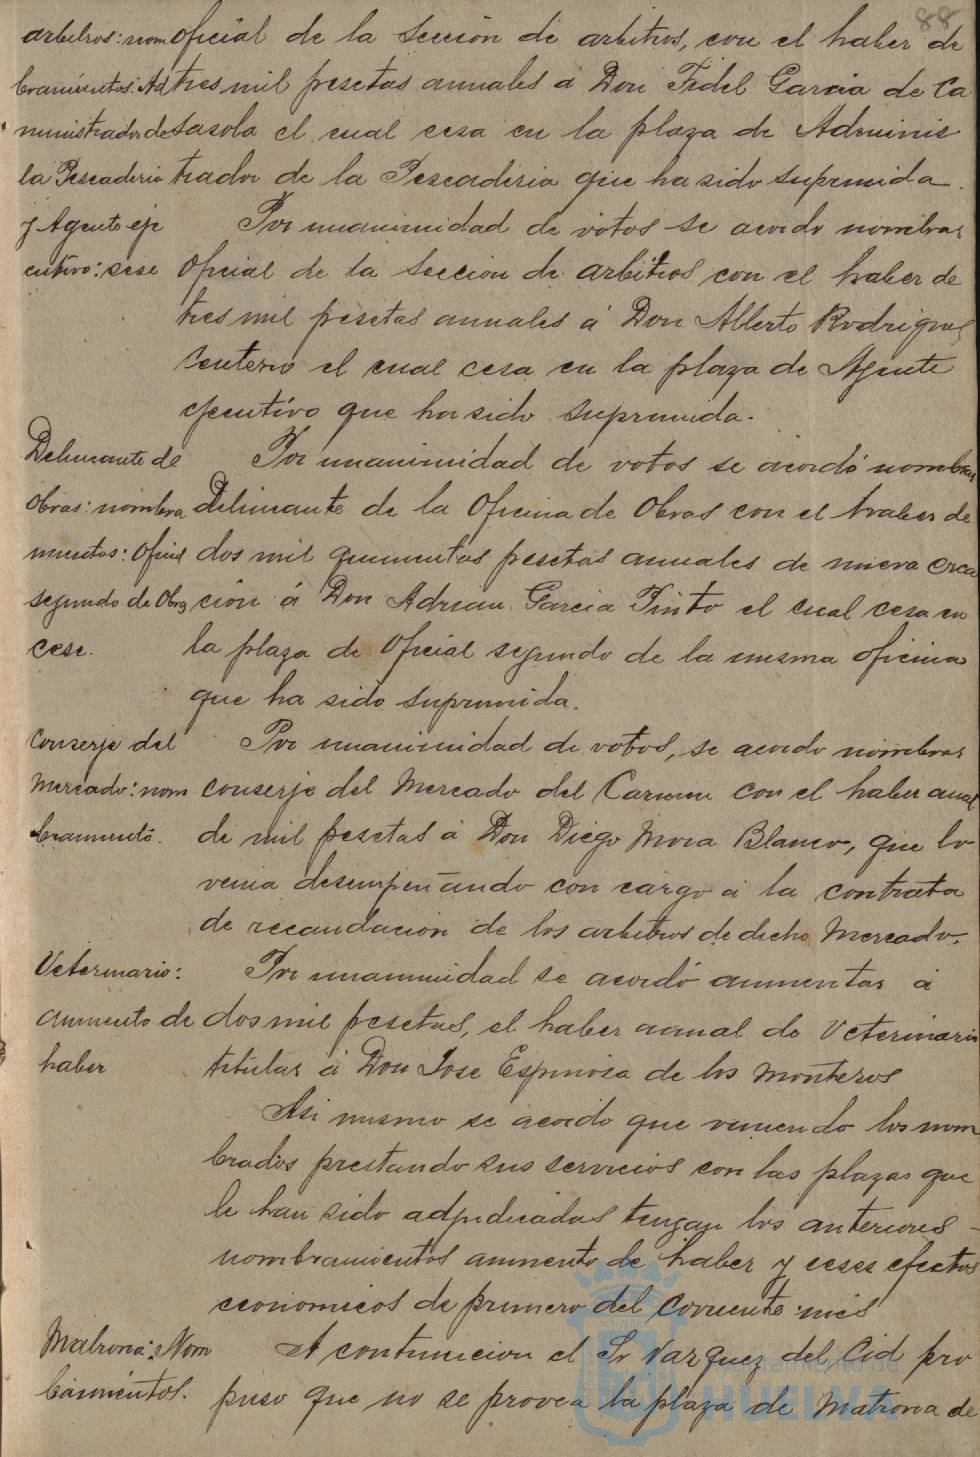 88
arbitros: nom oficial de la Seccion de arbitros, con el haber de
bramientos: Ad tres mil pesetas annales á Don Fidel Garcia de Ca
ministrador de sasola el cual cesa en la plaza de Adminis
la Pescaderia trador de la Pescaderia que ha sido suprimida.
y Agente eje Por unanimidad de votos se acordo nombrar
cutivo: cese oficial de la Seccion de arbitros con el haber de
tres mil pesetas annales á Don Alberto Rodriguez
Centeno el cual cesa en la plaza de Agente
ejecutivo que ha sido suprimida.
Delineante de Por unanimidad de votos se acordó nombrar
obras: nombra Delineante de la Oficina de Obras con el haber de
mientos: Oficial dos mil quinientas pesetas annales de nueva crea
segundo de Obras ción á Don Adrian Garcia Pinto el cual cesa en
cese. la plaza de Oficial segundo de la misma oficina
que ha sido suprimida.
Conserje del Por unanimidad de votos, se acordo nombrar
Mercado: nom conserje del Mercado del Carmen con el haber anual
bramiento. de mil pesetas á Don Diego Mora Blanco, que lo
venia desempeñando con cargo á la contrata
de recaudacion de los arbitros de dicho Mercado.
Veterinario: Por unanimidad se acordó aumentar á
aumento de dos mil pesetas, el haber anual de Veterinario
haber titular á Don Jose Espinosa de los Monteros
Asi mismo se acordo que viniendo los nom
brados prestando sus servicios con las plazas que
le han sido adjudicadas tengan los anteriores
nombramientos aumento de haber y ceses efectos
economicos de primero del corriente mes
Matrona: Nom A continucion el Sr Vazquez del Cid pro
bramientos. puso que no se provea la plaza de Matrona de
Ayuntamiento de
HUELVA